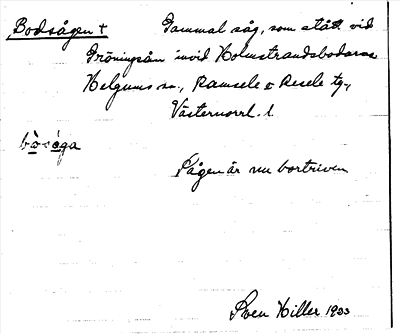 Bodsågen + Gammal såg, som stått vid
Gröningsån invid Holmstrandsbodarna
Helgums sn., Ramsele o Resele tg.,
Västernorrl. l.
bòsòga
Sågen är nu bortriven
Sven Hiller 1933